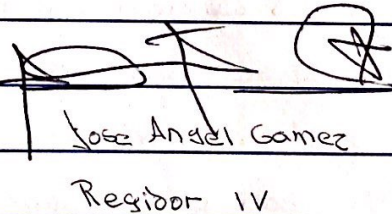 Jose Angel Gamez
Regidor IV